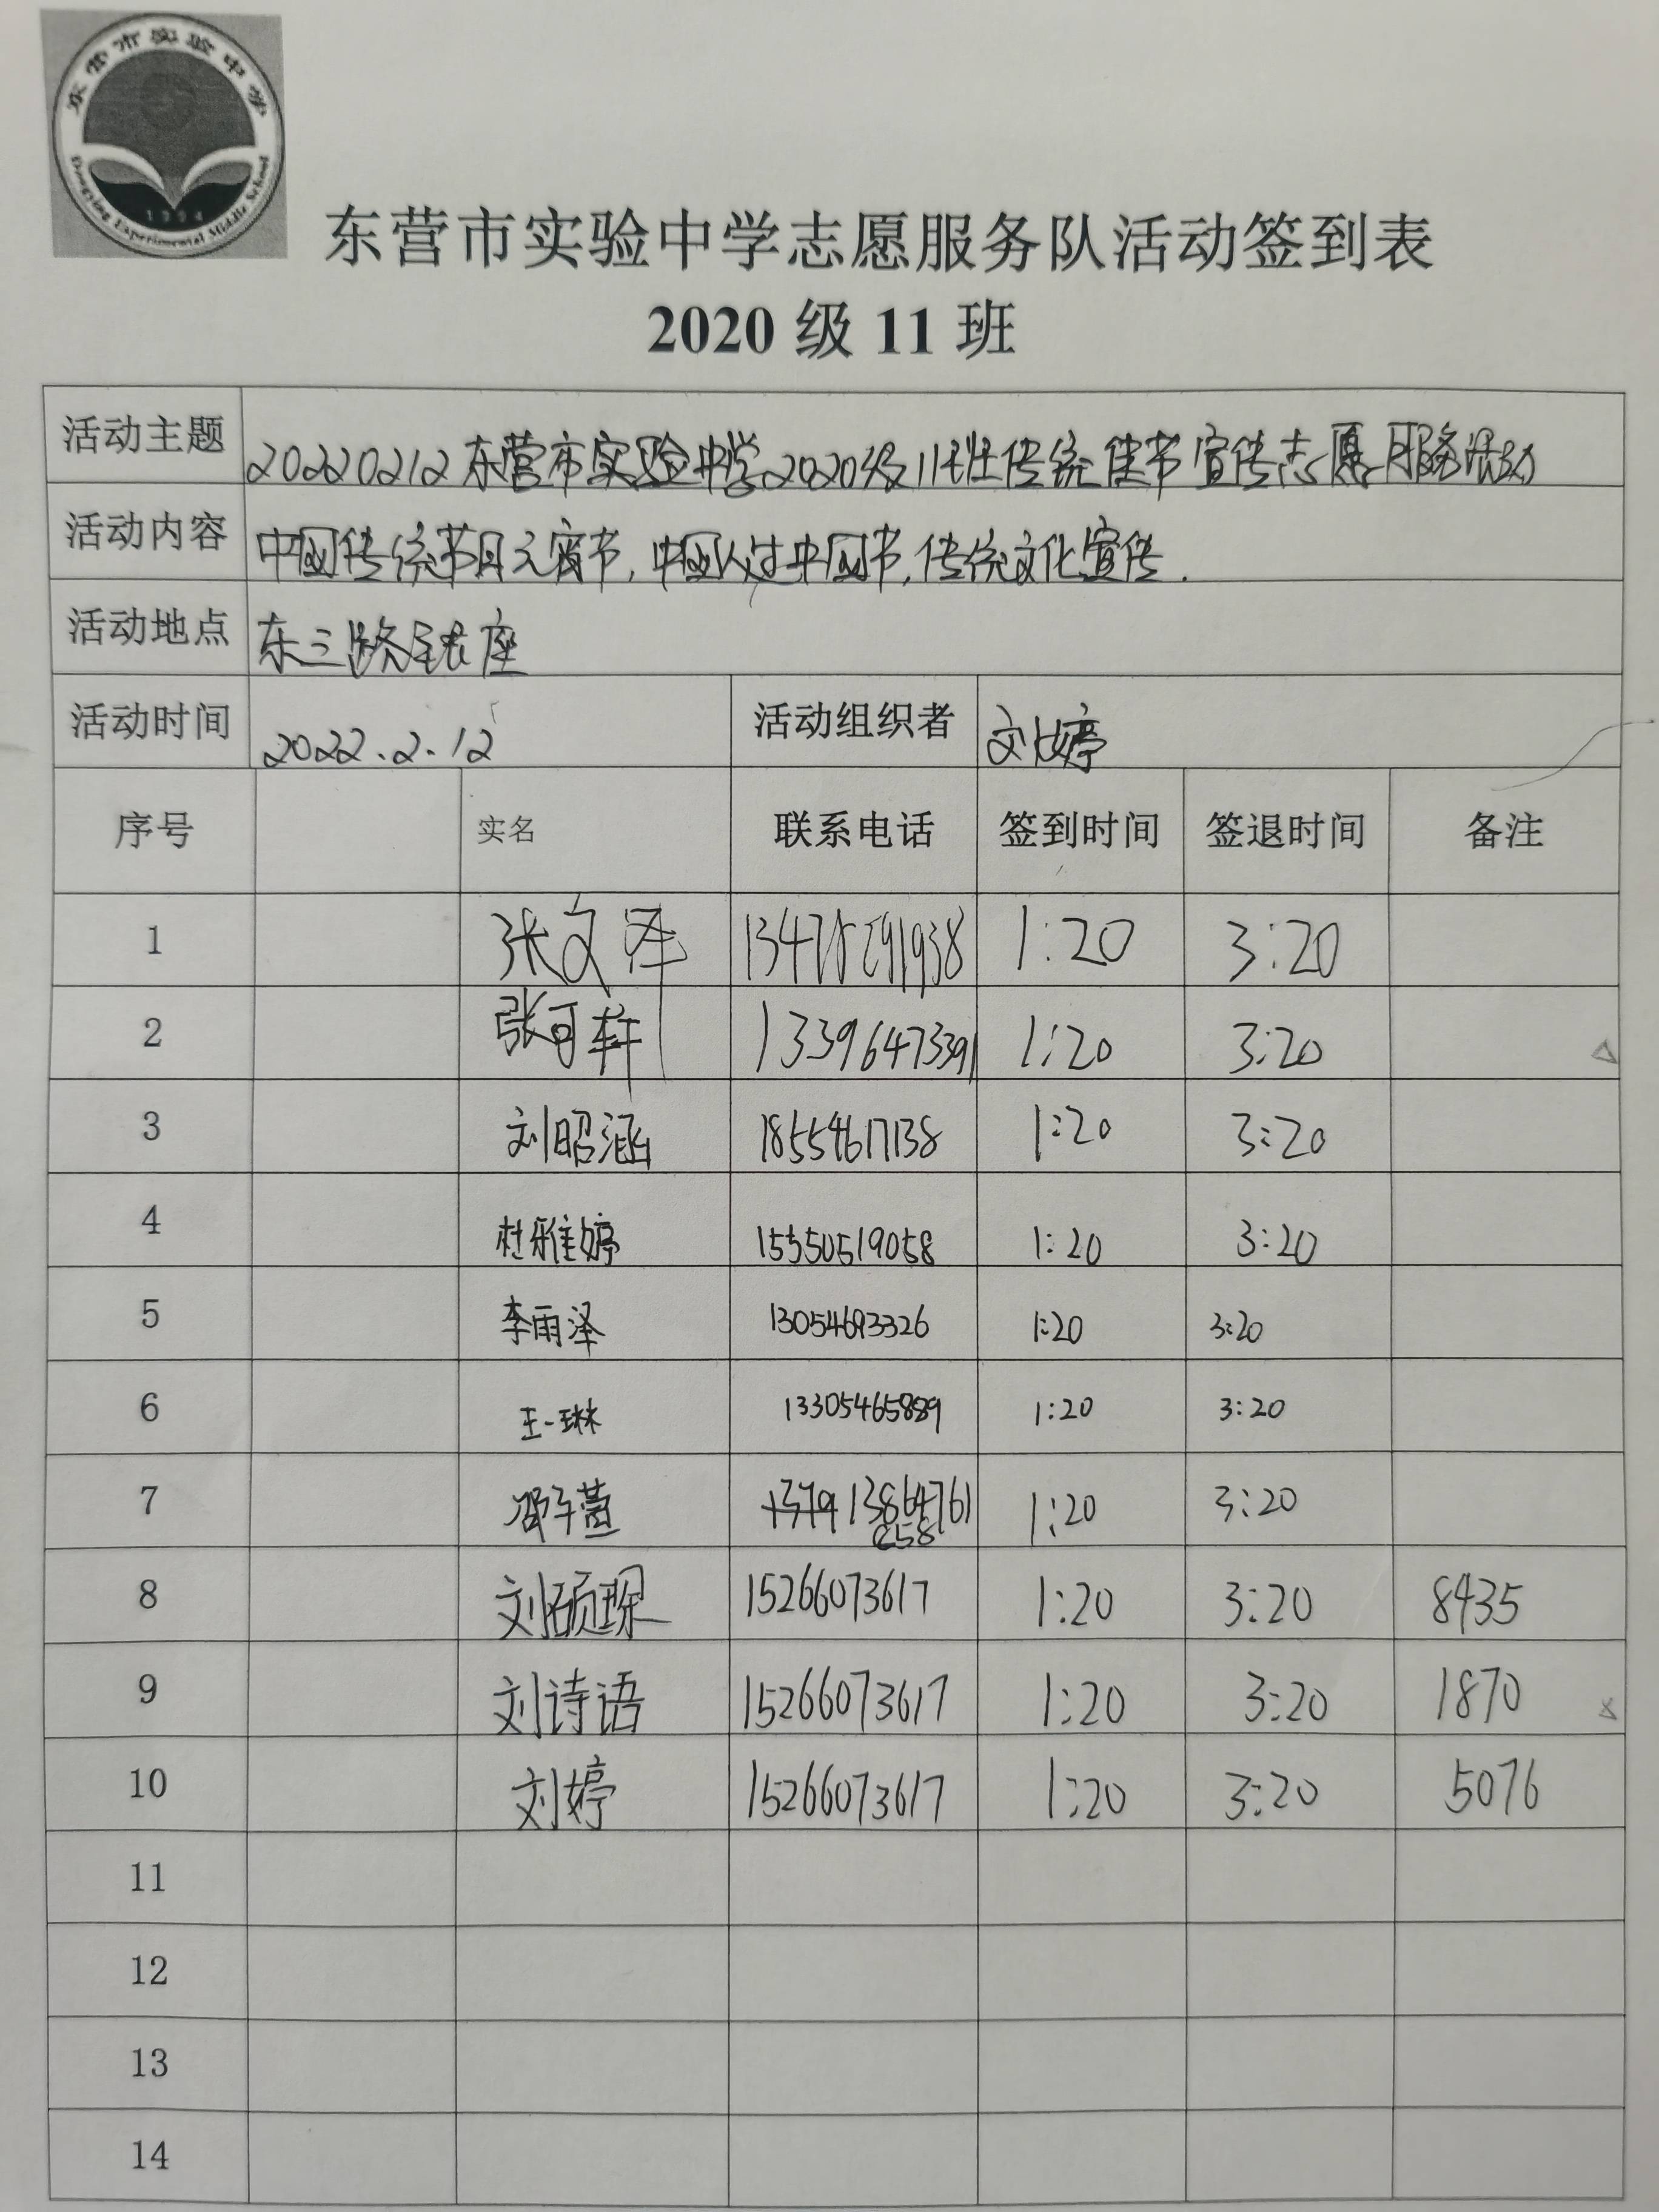 东营市实验中学
Dongying Experimental Middle School
1994
东营市实验中学志愿服务队活动签到表
2020 级 11 班
活动主题 20220212东营市实验中学2020级11班传统佳节宣传志愿服务活动
活动内容 中国传统节日元宵节,中国人过中国节,传统文化宣传.
活动地点 东三路银座
活动时间 2022.2.12 活动组织者 刘婷
序号 实名 联系电话 签到时间 签退时间 备注
1 张文泽 1:20 3:20
2 张可轩 13396473391 1:20 3:20
3 刘昭涵 18554617138 1:20 3:20
4 杜雅婷 15550519058 1:20 3:20
5 李雨泽 13054693326 1:20 3:20
6 王一琳 13305465889 1:20 3:20
7 邵子萱 1:20 3:20
8 刘硕琛 15266073617 1:20 3:20 8435
9 刘诗语 15266073617 1:20 3:20 1870
10 刘婷 15266073617 1:20 3:20 5076
11
12
13
14